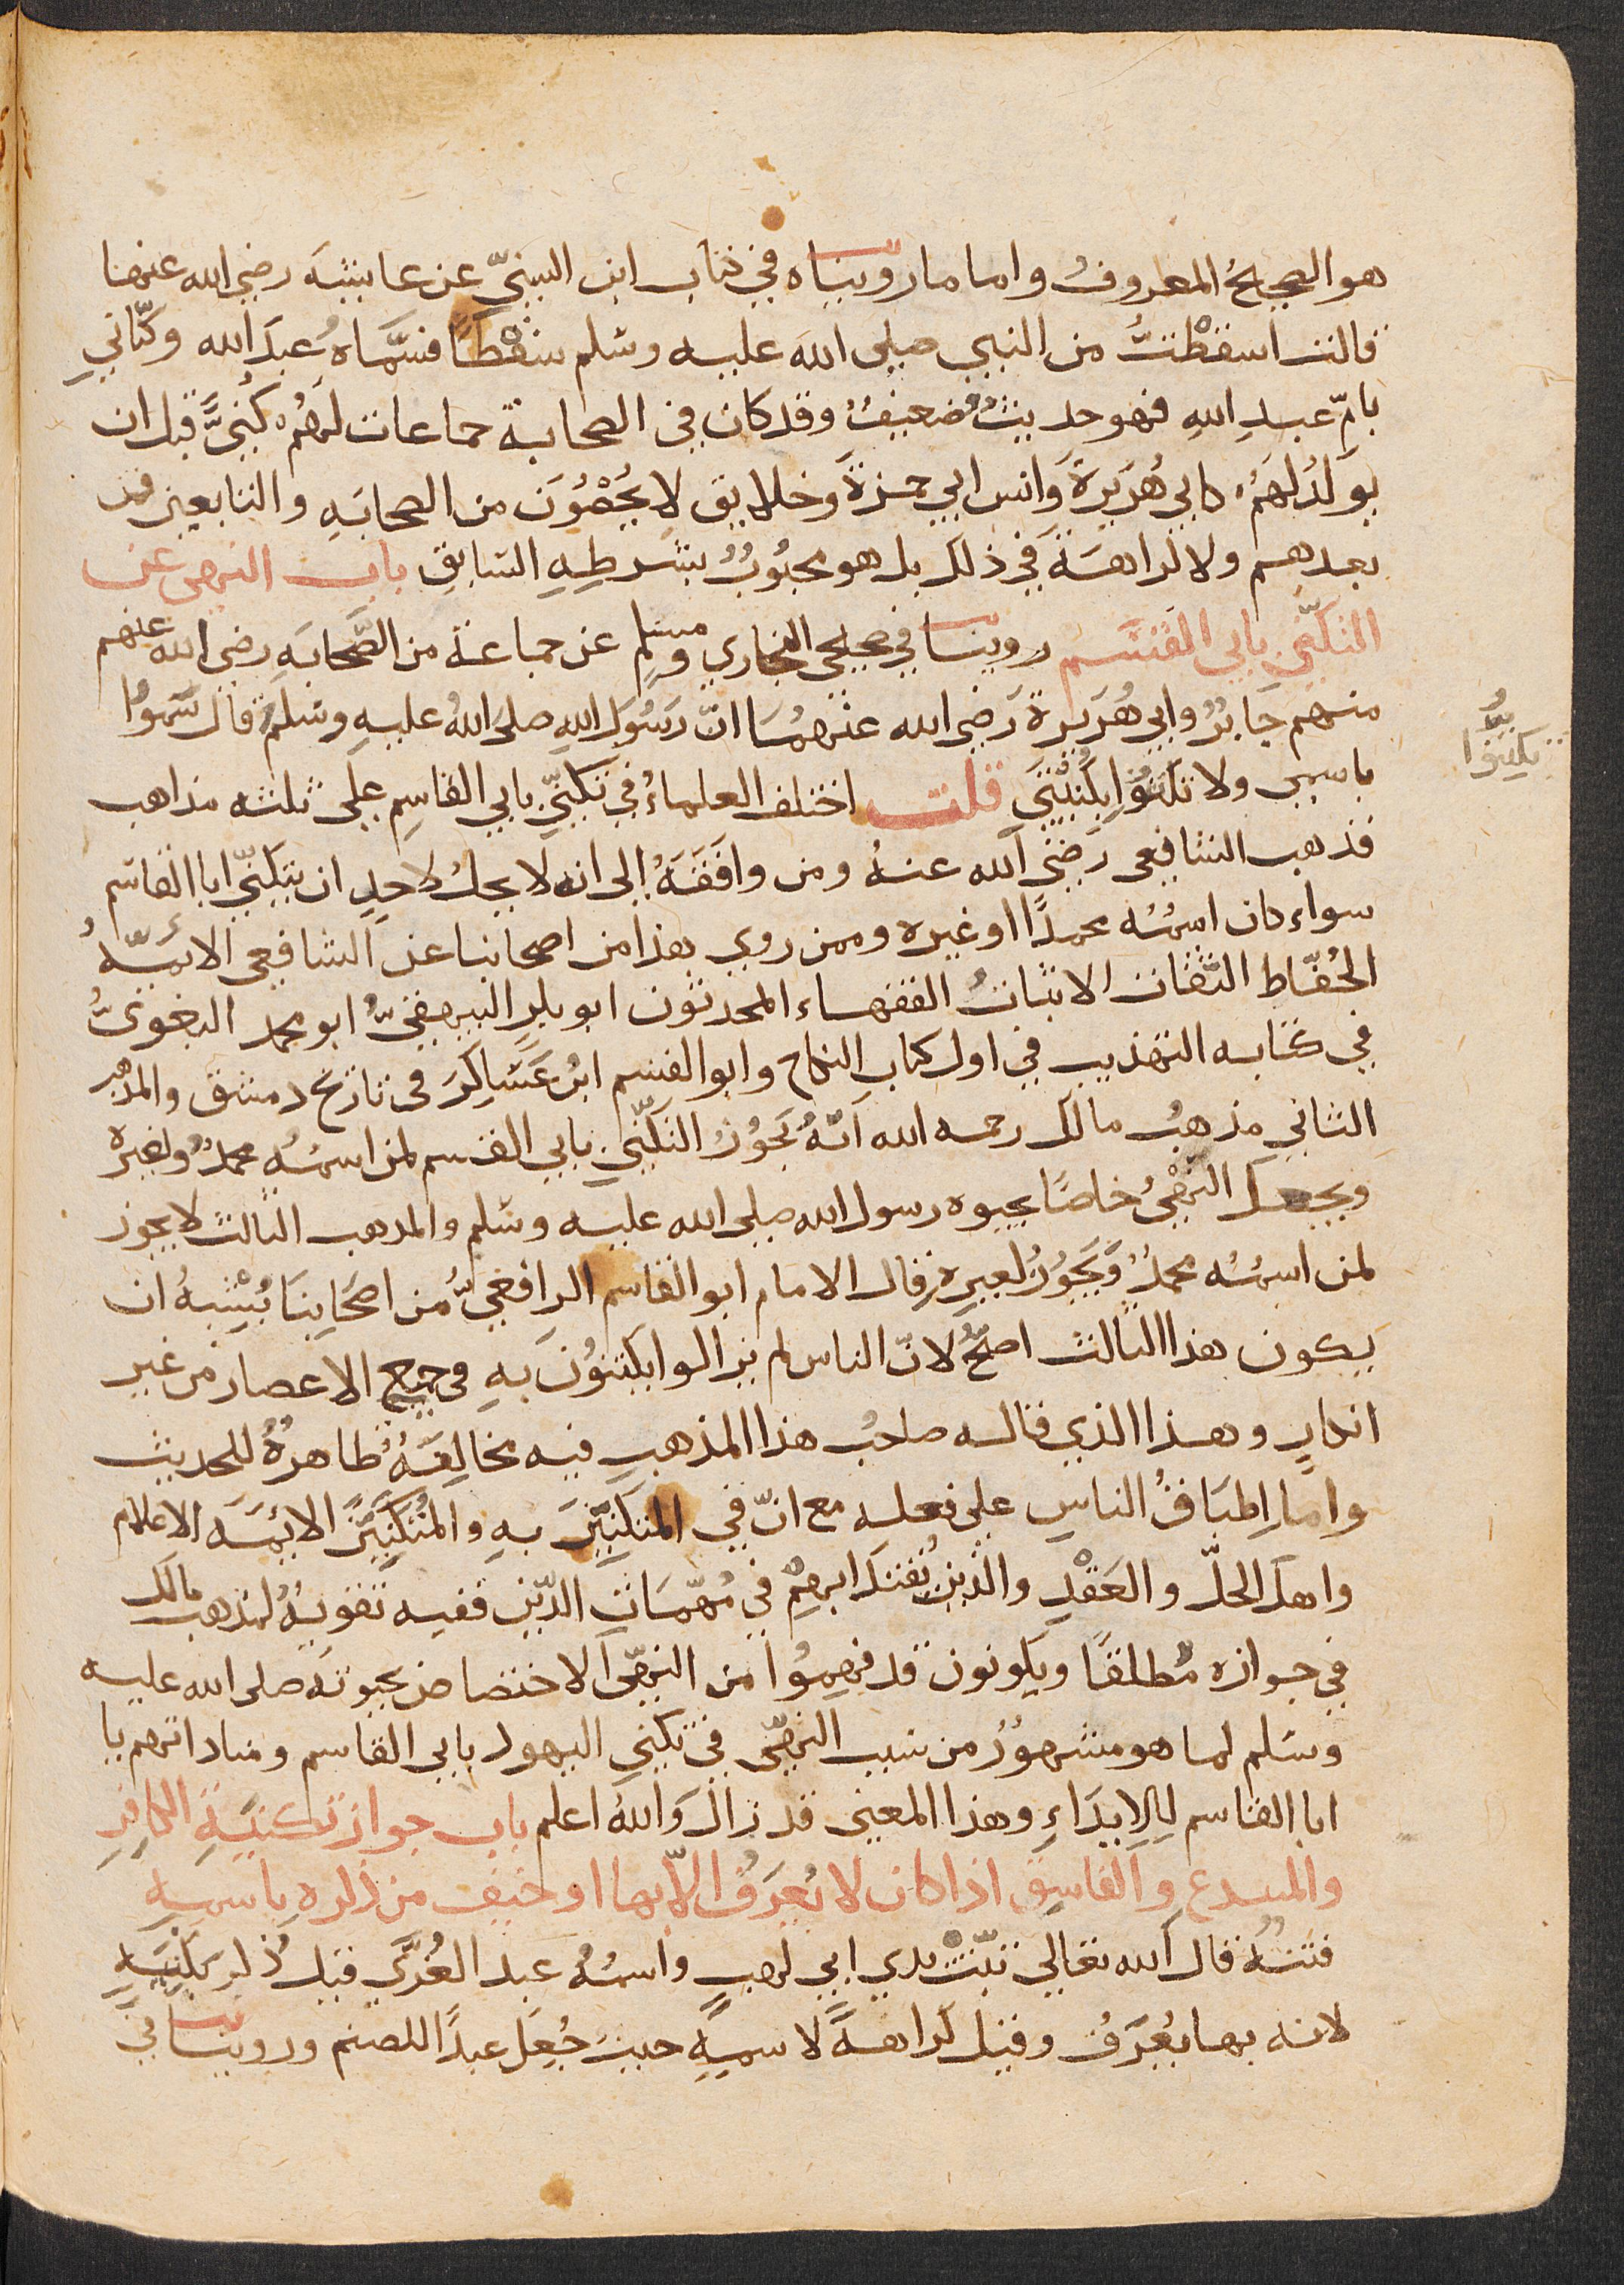 هو الصحيحُ المعروفُ واما ما رويناه في كتاب ابن السنيّ عن عايشة رضي الله عنها
قالت اسقطْتُ من النبي صلى الله عليه وسلم سقْطًا فسمَّاهُ عبدَ الله وكنّاني
بامّ عبدِ اللهِ فهو حديثٌ ضعيفٌ وقد كان في الصحابة جماعات لهُم كُنًى قبل ان
يُولَدُ لهُم كابي هُريرةَ وانس ابي حمزةَ وخلايق لا يُحْصَوْنَ من الصحابَةِ والتابعين فمن
بعدهم ولا كراهَة في ذلك بل هو محبُوبٌ بشرطِهِ السّابقِ باب النهى عن
التكنّي بابي القسَم روينا في صحيحي البخاري ومسلم عن جماعة من الصَّحابَةِ رضي الله عنهم
منهم جَابرٌ وابي هُريرةَ رَضي الله عنهُما انّ رسُولَ اللهِ صلى اللهُ عليهِ وسلم قال سَمُّوا
باسمي ولا تكنُّوا بكُنْيَتي قلت اختلف العلماءُ في تكنِّي بابي القاسِم على ثلثه مذاهب
تكنوا
فذهب الشافعي رَضيَ الله عنهُ ومن وافَقَهُ إلى انه لا يحلُ لاحدٍ ان يتكنّي ابا القاسم
سواء كان اسمُه محمدًا او غيره وممن روي هذا من اصحابنا عن الشافعي الائمّةُ
الحُفّاظ الثّقات الاثباتُ الفقهاء المحدثون ابو بكرٍ البيهقيُّ ابو محمد البغويُّ
في كتابه التهذيب في اول كتاب النكاح وابو القسم ابنُ عَسَاكِرَ في تاريخ دمشق والمذهب
الثاني مذهبُ مالك رحمه الله انّهُ يَجُوزُ التكنّي بابي القسم لمن اسمُه محمدٌ ولغيره
ويجعل النهْيَ خاصًا بحيوه رسول الله صلى الله عليه وسلم والمذهب الثالث لا يجوز
لمن اسمُه محمدٌ وَيَجُوزُ لغيرِهِ قال الامام ابو القاسم الرافعيُّ من اصحَابِنَا يُشْبهُ ان
يكون هذا الثالث اصحُّ لانّ الناس لم يزالوا يكتنُونَ بهِ في جميع الاعصار من غير
انكارٍ وهذا الذي قاله صاحبُ هذا المذهب فيه مخالِفةٌ ظاهرةٌ للحديث
وامّا اِطبَاقُ الناسِ على فعله مع انّ في المتكنِّينَ بهِ والمُتكنِّينَ الائمَة الاعلام
واهلَ الحلّ والعَقْدِ والذين يُقتدَا بهِم في مُهمّاتِ الدّين ففيه تقويةٌ لمذهب مالك
في جوازه مُطلقًا ويكونون قد فهِمُوا من النهي الاختصاص بحيوتهِ صلى الله عليه
وسلم لما هو مشهورُ من سبب النهي في تكنّي اليهود بابي القاسم ومناداتهم يا
ابا القاسم لِلايذَاءِ وهذا المعنى قد زالَ وَاللهُ اعلم باب جواز تكنيَةِ الكافِرِ
والمبتدع والفاسِق اذا كان لا يُعرَفُ الّا بها او خيف من ذكره باسمهِ
فتنَةٌ قال الله تعالى تبّتْ يدي ابي لهب واسمُهُ عبد العُزَّي قيل ذُكر بكُنيَتهِ
لانه بها يُعرَفُ وقيل كراهةً لاسمِهِ حيث جُعِلَ عبدًا للصنم وروينا في